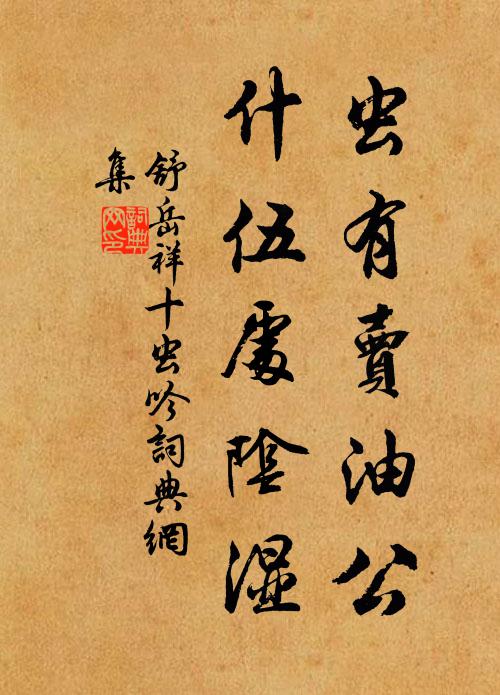 虫有賣油公
什伍處陰濕
舒岳祥十虫吟詞典網
集
詞典網印